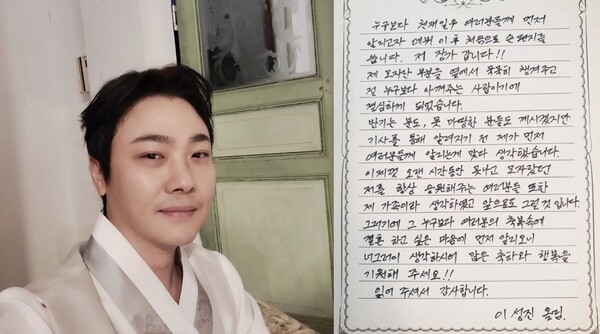 누구보다 첫재일우 여러분들께 먼저
알리고자 데뷔 이후 처음으로 손편지를
씁니다. 저 장가 갑니다!!
제 모자란 부분을 옆에서 묵묵히 챙겨주고
전 누구보다 아껴주는 사람이기에
결심하게 되었습니다.
반기는 분도, 못 마땅한 분들도 계시겠지만
기사를 통해 알려지기 전 제가 먼저
여러분들께 알리는게 맞다 생각했습니다.
이제껏 오랜 시간동안 못나고 모자랐던
저를 항상 응원해주는 여러분들 또한
제 가족이라 생각하였고 앞으로도 그럴 것 입니다.
그러기에 그 누구보다 여러분의 축복속에
결혼 하고 싶은 마음에 먼저 알리오니
너그러이 생각하시어 많은 축하와 행복을
기원해 주세요!!
읽어 주셔서 감사합니다.
이 성진 올림.